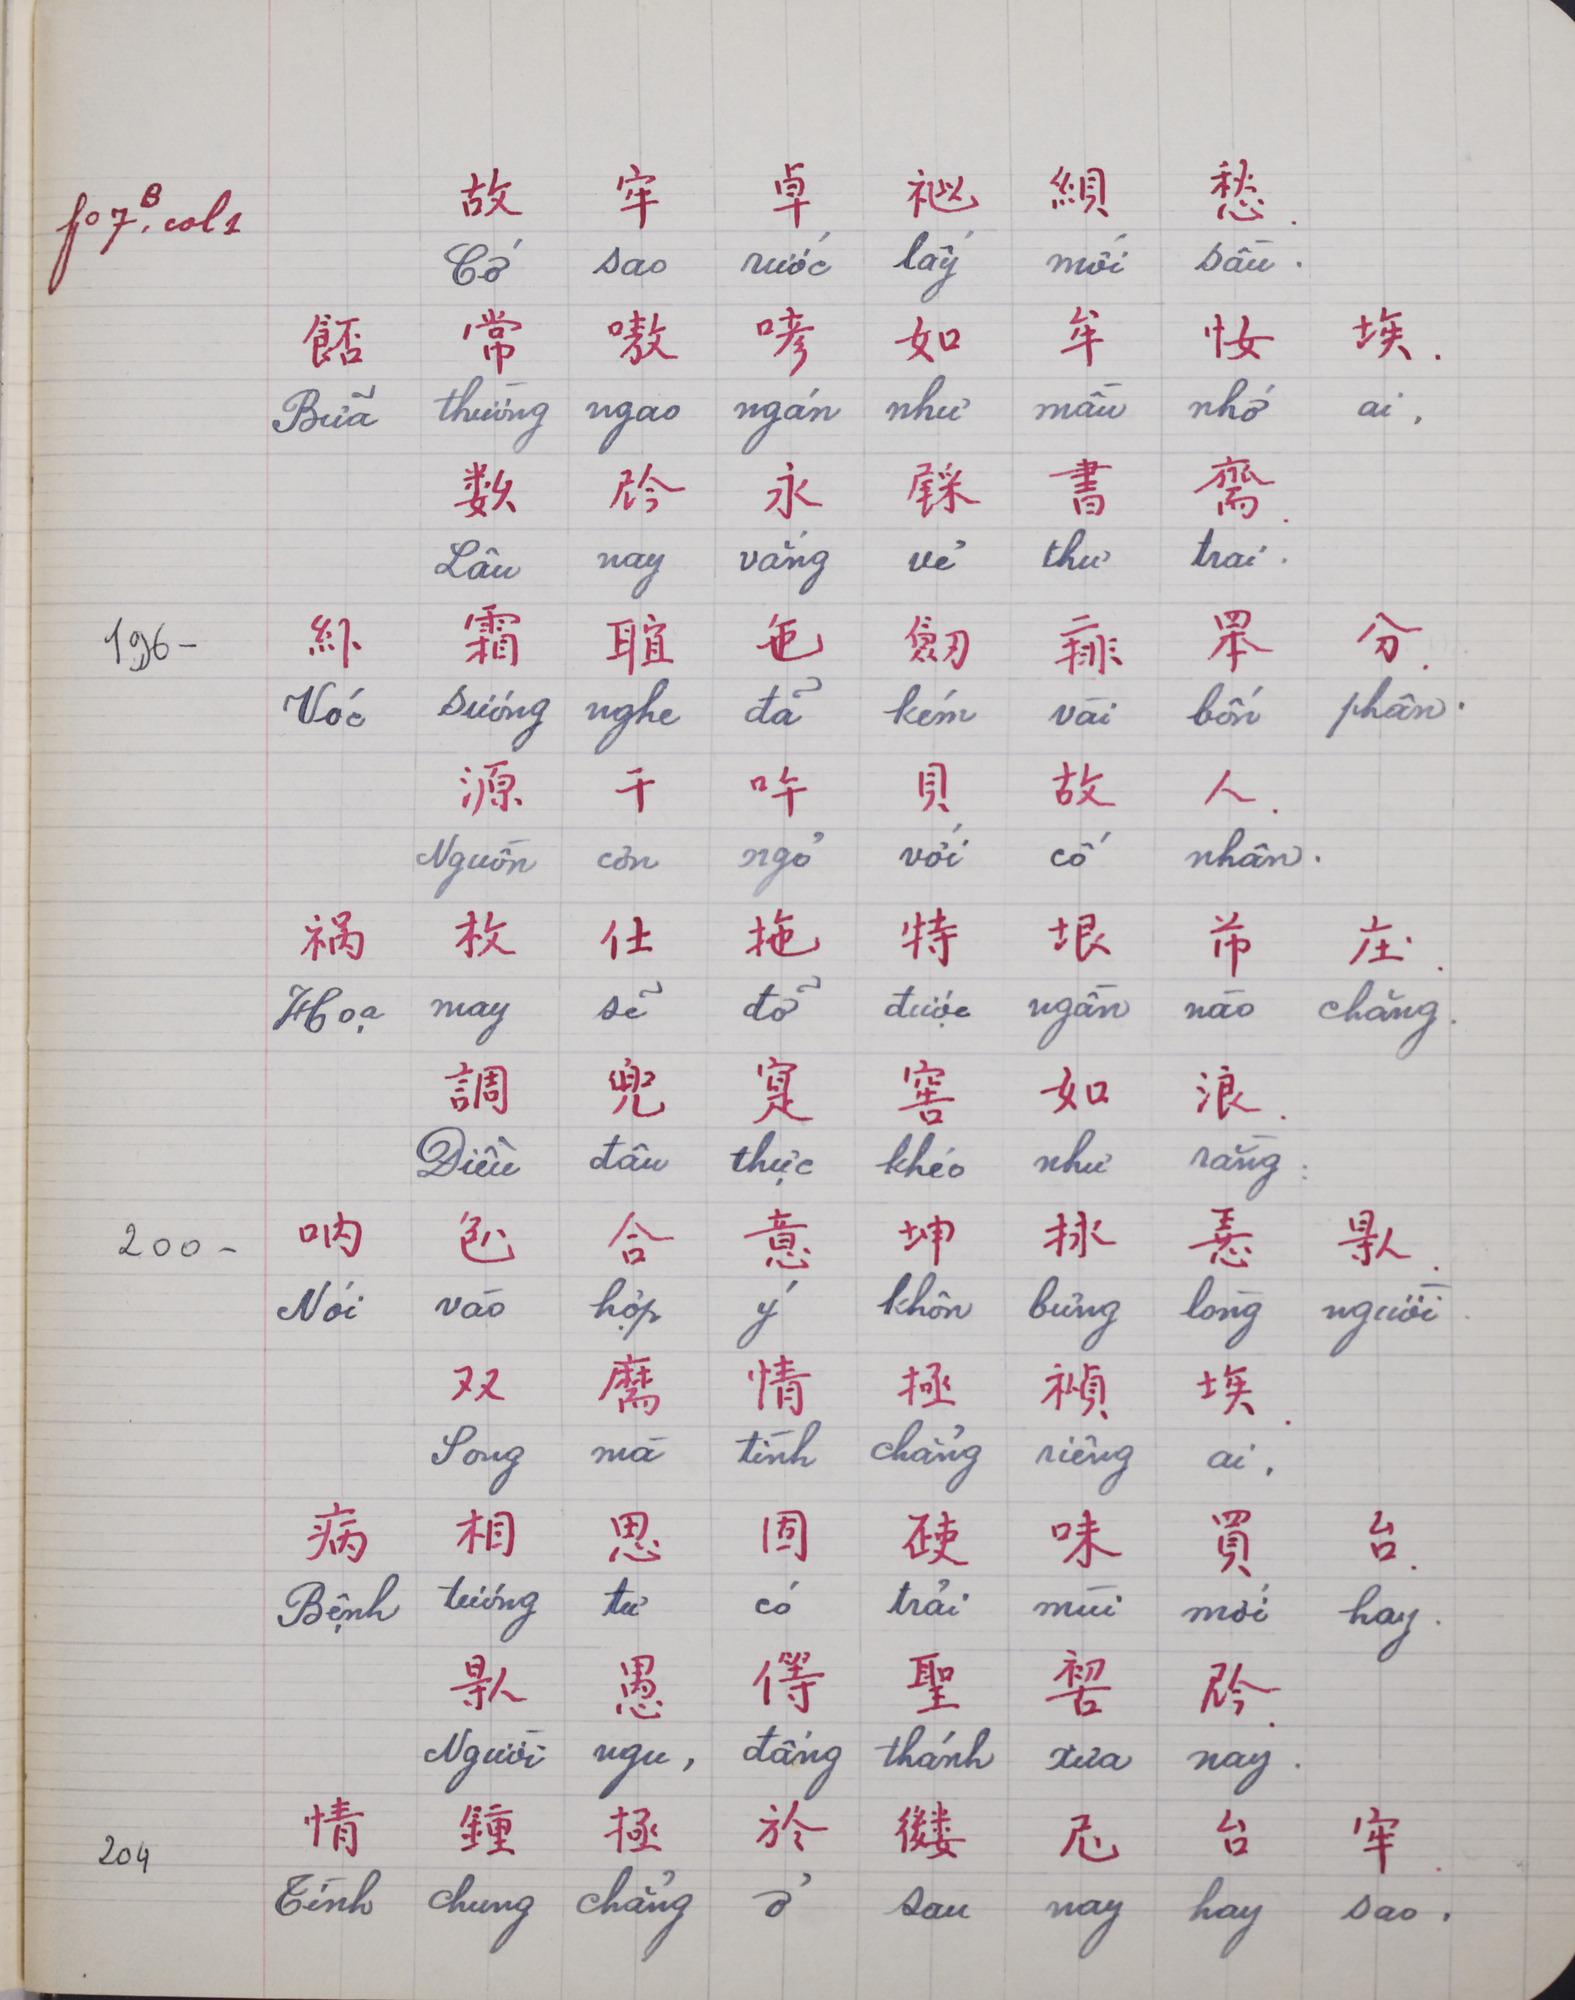 fº 7.B col 1
故 牢 卓 𥙩 䋦 愁.
Cớ sao rước lấy mối sầu.
常 嗷 如 牟 埃.
Bữa thường ngao ngán như mầu nhớ ai,
数 永 書 齋.
Lâu nay vắng vẻ thư trai.
196-
霜 分.
Vóc sương nghe đã kém vài bốn phân.
源 干 吘 貝 故 人.
Nguồn cơn ngỏ với cố nhân.
祸 枚 仕 拖 特 垠 芇 庄.
Hoạ may sẽ đỡ được ngần nào chăng.
調 兜 寔 窖 如 浪.
Điều đâu thực khéo như rằng:
200-
吶 合 意 坤
Nói vào hợp ý khôn bưng lòng người.
双 麿 情 極 埃.
Song mà tình chẳng riêng ai,
病 相 思 固 味 買 台.
Bệnh tương tư có trải mùi mới hay.
愚 聖
Người ngu, đấng thánh xưa nay.
情 鍾 極 於 台 牢.
204
Tình chung chẳng ở sau nay hay sao.